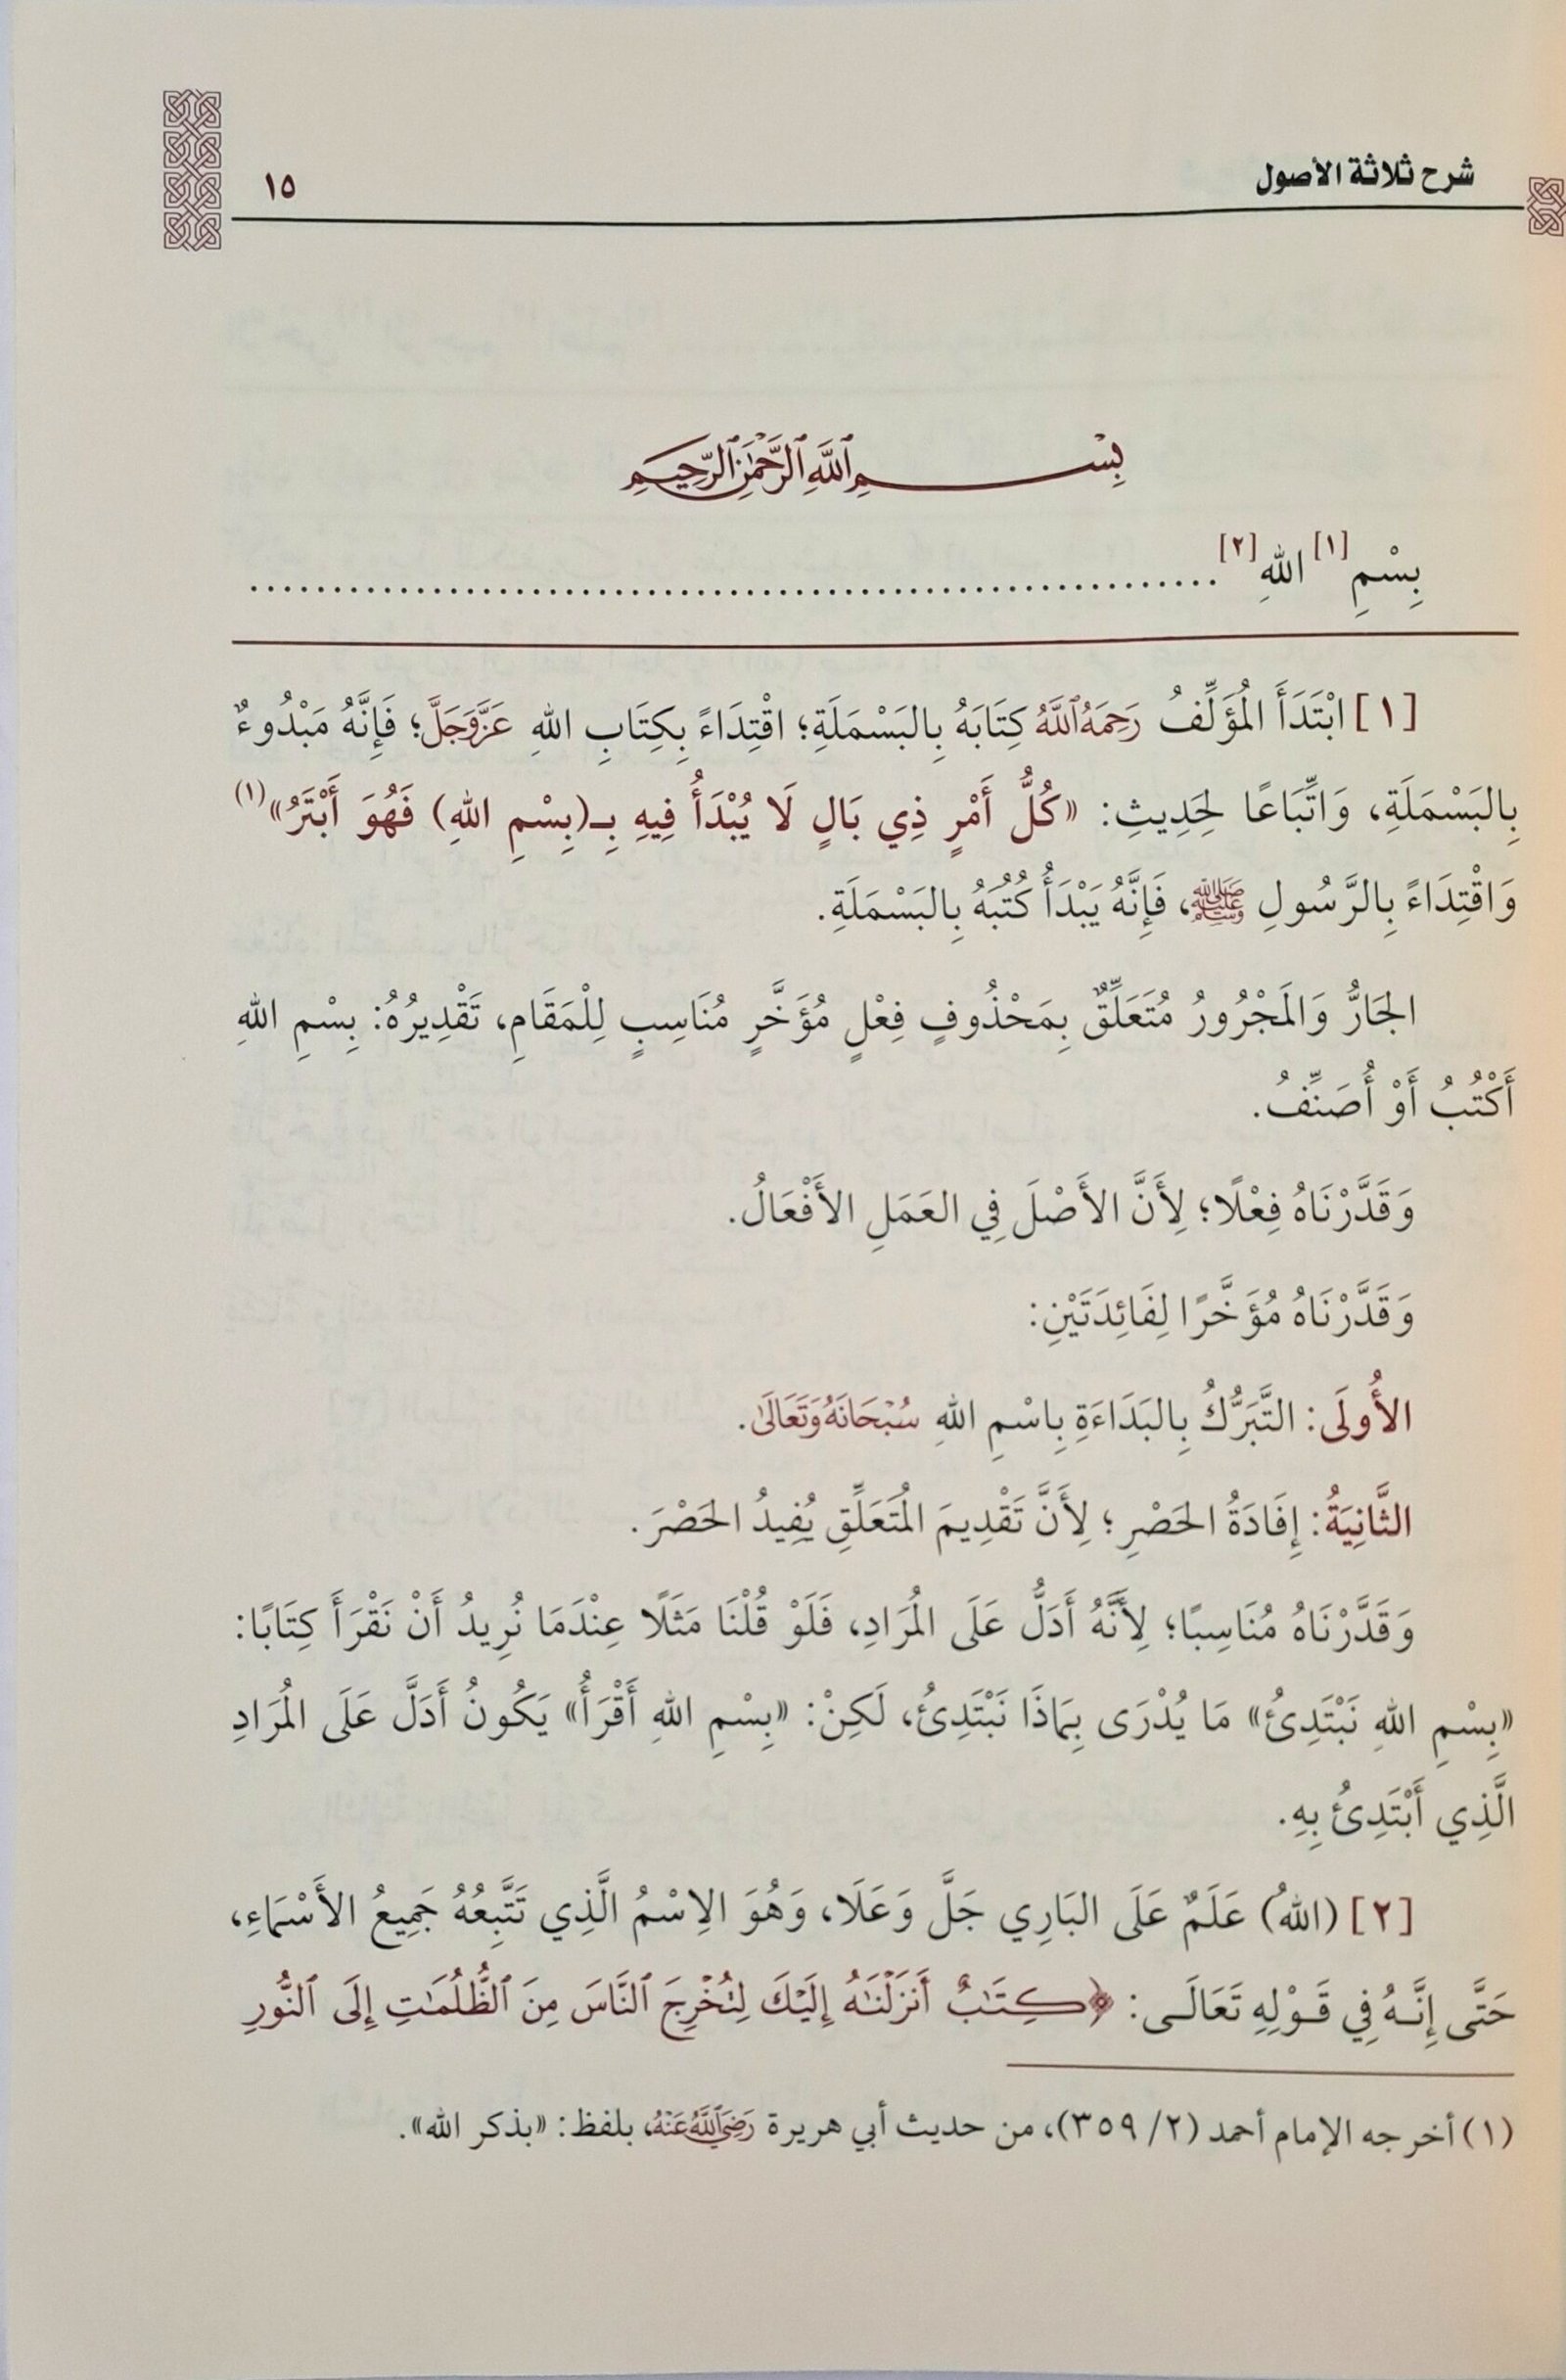 شرح ثلاثة الأصول
١٥
بِسْمِ ٱللَّهِ ٱلرَّحْمَٰنِ ٱلرَّحِيمِ
بِسْمِ[١] اللهِ[٢]................................................................
[١] ابْتَدَأَ المُؤَلِّفُ رَحِمَهُ ٱللَّهُ كِتَابَهُ بِالبَسْمَلَةِ؛ اقْتِدَاءً بِكِتَابِ اللهِ عَزَّوَجَلَّ؛ فَإِنَّهُ مَبْدُوءٌ
بِالبَسْمَلَةِ، وَاتِّبَاعًا لِحَدِيثِ: «كُلُّ أَمْرٍ ذِي بَالٍ لَا يُبْدَأُ فِيهِ بِـ(بِسْمِ اللهِ) فَهُوَ أَبْتَرُ»(١)
وَاقْتِدَاءً بِالرَّسُولِ ﷺ، فَإِنَّهُ يَبْدَأُ كُتُبَهُ بِالبَسْمَلَةِ.
الجَارُّ وَالمَجْرُورُ مُتَعَلِّقٌ بِمَحْذُوفٍ فِعْلٍ مُؤَخَّرٍ مُنَاسِبٍ لِلْمَقَامِ، تَقْدِيرُهُ: بِسْمِ اللهِ
أَكْتُبُ أَوْ أُصَنِّفُ.
وَقَدَّرْنَاهُ فِعْلًا؛ لِأَنَّ الأَصْلَ فِي العَمَلِ الأَفْعَالُ.
وَقَدَّرْنَاهُ مُؤَخَّرًا لِفَائِدَتَيْنِ:
الأُولَى: التَّبَرُّكُ بِالبَدَاءَةِ بِاسْمِ اللهِ سُبْحَانَهُ وَتَعَالَىٰ.
الثَّانِيَةُ: إِفَادَةُ الحَصْرِ؛ لِأَنَّ تَقْدِيمَ المُتَعَلِّقِ يُفِيدُ الحَصْرَ.
وَقَدَّرْنَاهُ مُنَاسِبًا؛ لِأَنَّهُ أَدَلُّ عَلَى المُرَادِ، فَلَوْ قُلْنَا مَثَلًا عِنْدَمَا نُرِيدُ أَنْ نَقْرَأَ كِتَابًا:
«بِسْمِ اللهِ نَبْتَدِئُ» مَا يُدْرَى بِمَاذَا نَبْتَدِئُ، لَكِنْ: «بِسْمِ اللهِ أَقْرَأُ» يَكُونُ أَدَلَّ عَلَى المُرَادِ
الَّذِي أَبْتَدِئُ بِهِ.
[٢] (اللهُ) عَلَمٌ عَلَى البَارِي جَلَّ وَعَلَا، وَهُوَ الِاسْمُ الَّذِي تَتَّبِعُهُ جَمِيعُ الأَسْمَاءِ،
حَتَّى إِنَّـهُ فِي قَـوْلِهِ تَعَالَـى: ﴿كِتَٰبٌ أَنزَلْنَٰهُ إِلَيْكَ لِتُخْرِجَ ٱلنَّاسَ مِنَ ٱلظُّلُمَٰتِ إِلَى ٱلنُّورِ
(١) أخرجه الإمام أحمد (٢/ ٣٥٩)، من حديث أبي هريرة رَضِيَ ٱللَّهُ عَنْهُ، بلفظ: «بذكر الله».